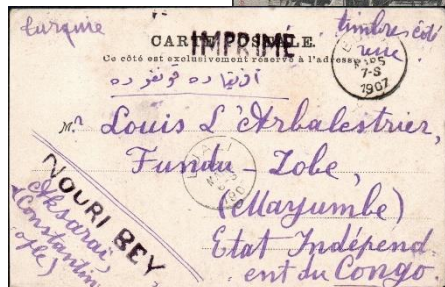 turquie
timbres côté
vue
CARTE POSTALE.
IMPRIMÉ
Ce côté est exclusivement réservé à l'adresse
7-S
1907
Mr Louis L'Arbalestrier,
Fundu-Zobe,
(Mayumbe)
Etat Indépend
ent du Congo.
NOURI BEY
Aksaraï,
(Constantin
ople)